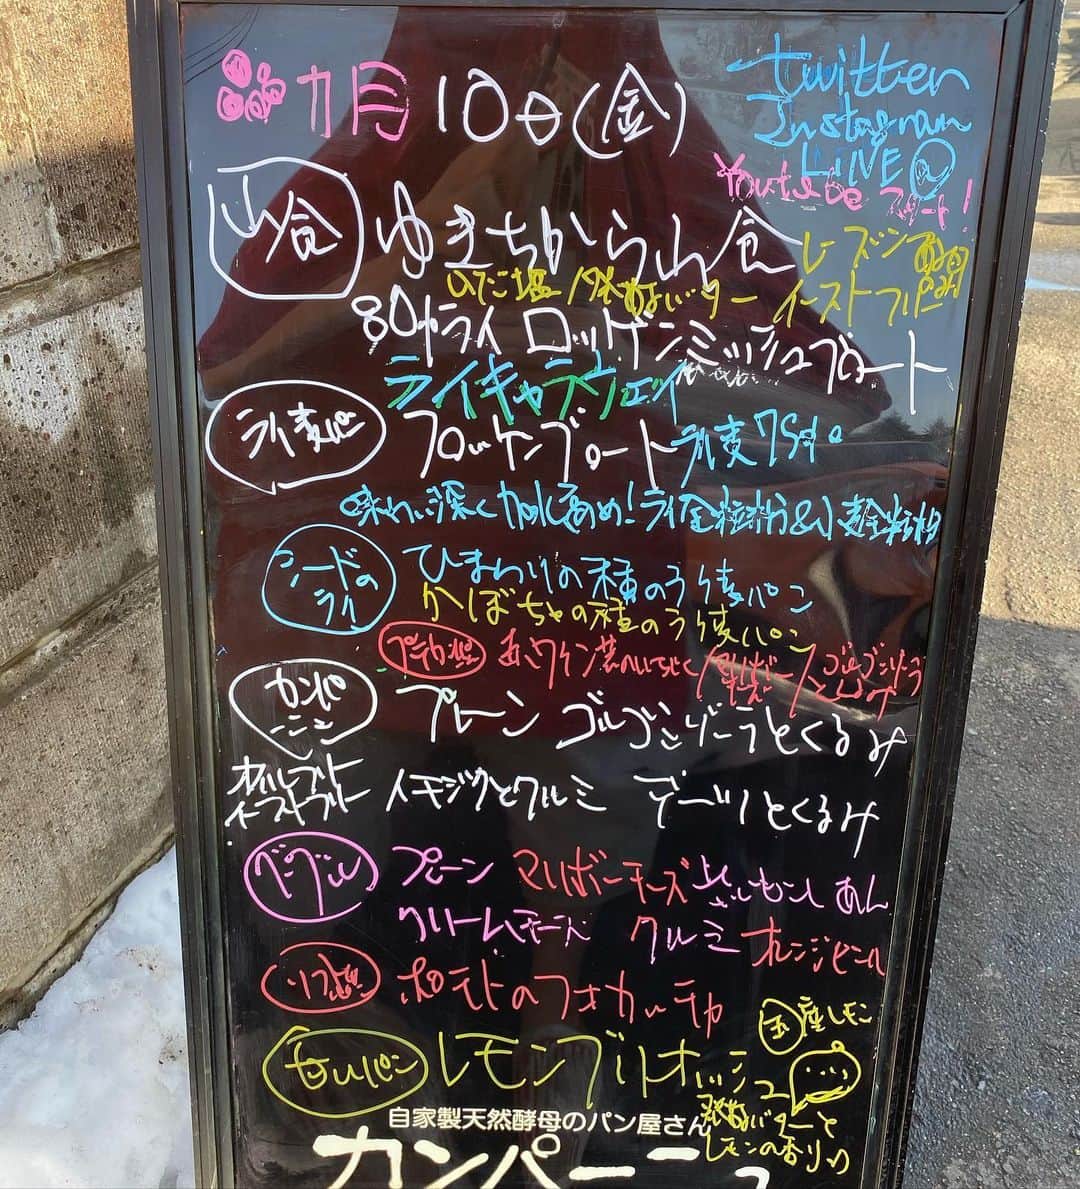 月10日(金)
twitter
Instagram
LIVE@
Youtube スタート!
山食 ゆきちから山食 レーズン
バター イーストフリー
80%ライ ロッゲンミッシュブロート
ライキャラウェイ
ライ麦パン フロッケンブロート ライ麦75%
味わい深く加水高め!ライ全粒粉&小麦全粒粉
シードのライ ひまわりの種のライ麦パン
かぼちゃの種のライ麦パン
プチカンパ 赤ワイン煮のいちじく
カンパーニュ プレーン ゴルゴンゾーラとくるみ
オイルフリー
イーストフリー イチジクとクルミ デーツとくるみ
ベーグル プレーン マリボーチーズ あん
クリームチーズ クルミ オレンジピール
ポテトのフォカッチャ
甘いパン レモンブリオッシュ
国産レモン
バターと
レモンの香り
自家製天然酵母のパン屋さん
カンパーニュ